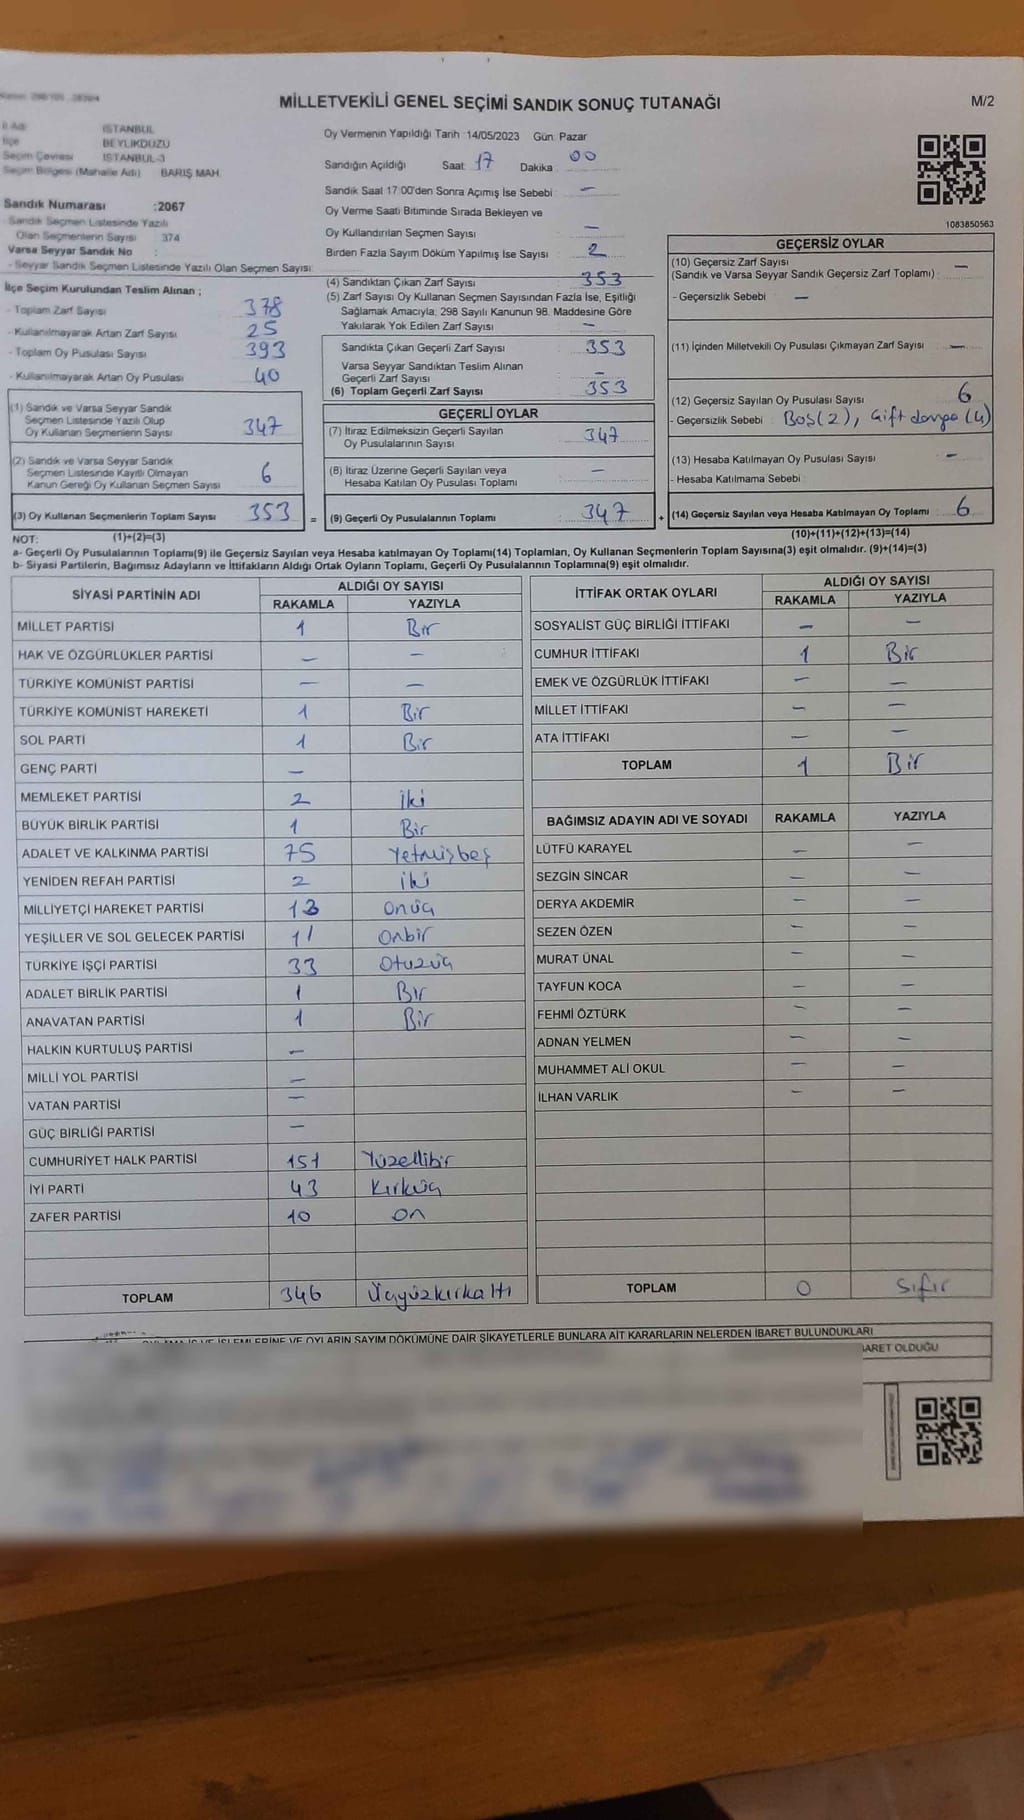 MİLLETVEKİLİ GENEL SEÇİMİ SANDIK SONUÇ TUTANAĞI
M/2
İl Adı İSTANBUL
İlçe BEYLİKDÜZÜ
Seçim Çevresi İSTANBUL-3
Seçim Bölgesi (Mahalle Adı) BARIŞ MAH.
Sandık Numarası :2067
- Sandık Seçmen Listesinde Yazılı
Olan Seçmenlerin Sayısı : 374
Varsa Seyyar Sandık No :
- Seyyar Sandık Seçmen Listesinde Yazılı Olan Seçmen Sayısı:
İlçe Seçim Kurulundan Teslim Alınan ;
- Toplam Zarf Sayısı 378
- Kullanılmayarak Artan Zarf Sayısı 25
- Toplam Oy Pusulası Sayısı 393
- Kullanılmayarak Artan Oy Pusulası 40
(1) Sandık ve Varsa Seyyar Sandık
Seçmen Listesinde Yazılı Olup
Oy Kullanan Seçmenlerin Sayısı 347
(2) Sandık ve Varsa Seyyar Sandık
Seçmen Listesinde Kayıtlı Olmayan
Kanun Gereği Oy Kullanan Seçmen Sayısı 6
(3) Oy Kullanan Seçmenlerin Toplam Sayısı 353 =
Oy Vermenin Yapıldığı Tarih :14/05/2023 Gün: Pazar
Sandığın Açıldığı Saat: 17 Dakika: 00
Sandık Saat 17:00'den Sonra Açımış İse Sebebi : —
Oy Verme Saati Bitiminde Sırada Bekleyen ve
Oy Kullandırılan Seçmen Sayısı : —
Birden Fazla Sayım Döküm Yapılmış İse Sayısı : 2
(4) Sandıktan Çıkan Zarf Sayısı : 353
(5) Zarf Sayısı Oy Kullanan Seçmen Sayısından Fazla İse, Eşitliği
Sağlamak Amacıyla, 298 Sayılı Kanunun 98. Maddesine Göre
Yakılarak Yok Edilen Zarf Sayısı : —
Sandıkta Çıkan Geçerli Zarf Sayısı : 353
Varsa Seyyar Sandıktan Teslim Alınan
Geçerli Zarf Sayısı : —
(6) Toplam Geçerli Zarf Sayısı : 353
GEÇERLİ OYLAR
(7) İtiraz Edilmeksizin Geçerli Sayılan
Oy Pusulalarının Sayısı : 347
(8) İtiraz Üzerine Geçerli Sayılan veya
Hesaba Katılan Oy Pusulası Toplamı : —
(9) Geçerli Oy Pusulalarının Toplamı : 347 +
1083850563
GEÇERSİZ OYLAR
(10) Geçersiz Zarf Sayısı —
(Sandık ve Varsa Seyyar Sandık Geçersiz Zarf Toplamı) :
- Geçersizlik Sebebi : —
(11) İçinden Milletvekili Oy Pusulası Çıkmayan Zarf Sayısı : —
(12) Geçersiz Sayılan Oy Pusulası Sayısı : 6
- Geçersizlik Sebebi : Boş(2), Çift damga (4)
(13) Hesaba Katılmayan Oy Pusulası Sayısı : —
- Hesaba Katılmama Sebebi :
(14) Geçersiz Sayılan veya Hesaba Katılmayan Oy Toplamı : 6
NOT: (1)+(2)=(3) (10)+(11)+(12)+(13)=(14)
a- Geçerli Oy Pusulalarının Toplamı(9) ile Geçersiz Sayılan veya Hesaba katılmayan Oy Toplamı(14) Toplamları, Oy Kullanan Seçmenlerin Toplam Sayısına(3) eşit olmalıdır. (9)+(14)=(3)
b- Siyasi Partilerin, Bağımsız Adayların ve İttifakların Aldığı Ortak Oyların Toplamı, Geçerli Oy Pusulalarının Toplamına(9) eşit olmalıdır.
SİYASİ PARTİNİN ADI ALDIĞI OY SAYISI
RAKAMLA YAZIYLA
MİLLET PARTİSİ 1 Bir
HAK VE ÖZGÜRLÜKLER PARTİSİ — —
TÜRKİYE KOMÜNİST PARTİSİ — —
TÜRKİYE KOMÜNİST HAREKETİ 1 Bir
SOL PARTİ 1 Bir
GENÇ PARTİ —
MEMLEKET PARTİSİ 2 İki
BÜYÜK BİRLİK PARTİSİ 1 Bir
ADALET VE KALKINMA PARTİSİ 75 Yetmişbeş
YENİDEN REFAH PARTİSİ 2 İki
MİLLİYETÇİ HAREKET PARTİSİ 13 Onüç
YEŞİLLER VE SOL GELECEK PARTİSİ 11 Onbir
TÜRKİYE İŞÇİ PARTİSİ 33 Otuzüç
ADALET BİRLİK PARTİSİ 1 Bir
ANAVATAN PARTİSİ 1 Bir
HALKIN KURTULUŞ PARTİSİ —
MİLLİ YOL PARTİSİ —
VATAN PARTİSİ —
GÜÇ BİRLİĞİ PARTİSİ —
CUMHURİYET HALK PARTİSİ 151 Yüzellibir
İYİ PARTİ 43 Kırküç
ZAFER PARTİSİ 10 On
TOPLAM 346 Üçyüzkırkaltı
İTTİFAK ORTAK OYLARI ALDIĞI OY SAYISI
RAKAMLA YAZIYLA
SOSYALİST GÜÇ BİRLİĞİ İTTİFAKI — —
CUMHUR İTTİFAKI 1 Bir
EMEK VE ÖZGÜRLÜK İTTİFAKI — —
MİLLET İTTİFAKI — —
ATA İTTİFAKI — —
TOPLAM 1 Bir
BAĞIMSIZ ADAYIN ADI VE SOYADI RAKAMLA YAZIYLA
LÜTFÜ KARAYEL — —
SEZGİN SİNCAR — —
DERYA AKDEMİR — —
SEZEN ÖZEN — —
MURAT ÜNAL — —
TAYFUN KOCA — —
FEHMİ ÖZTÜRK — —
ADNAN YELMEN — —
MUHAMMET ALİ OKUL — —
İLHAN VARLIK — —
TOPLAM 0 Sıfır
İŞLEMLERİNE VE OYLARIN SAYIM DÖKÜMÜNE DAİR ŞİKAYETLERLE BUNLARA AİT KARARLARIN NELERDEN İBARET BULUNDUKLARI
OLDUĞU